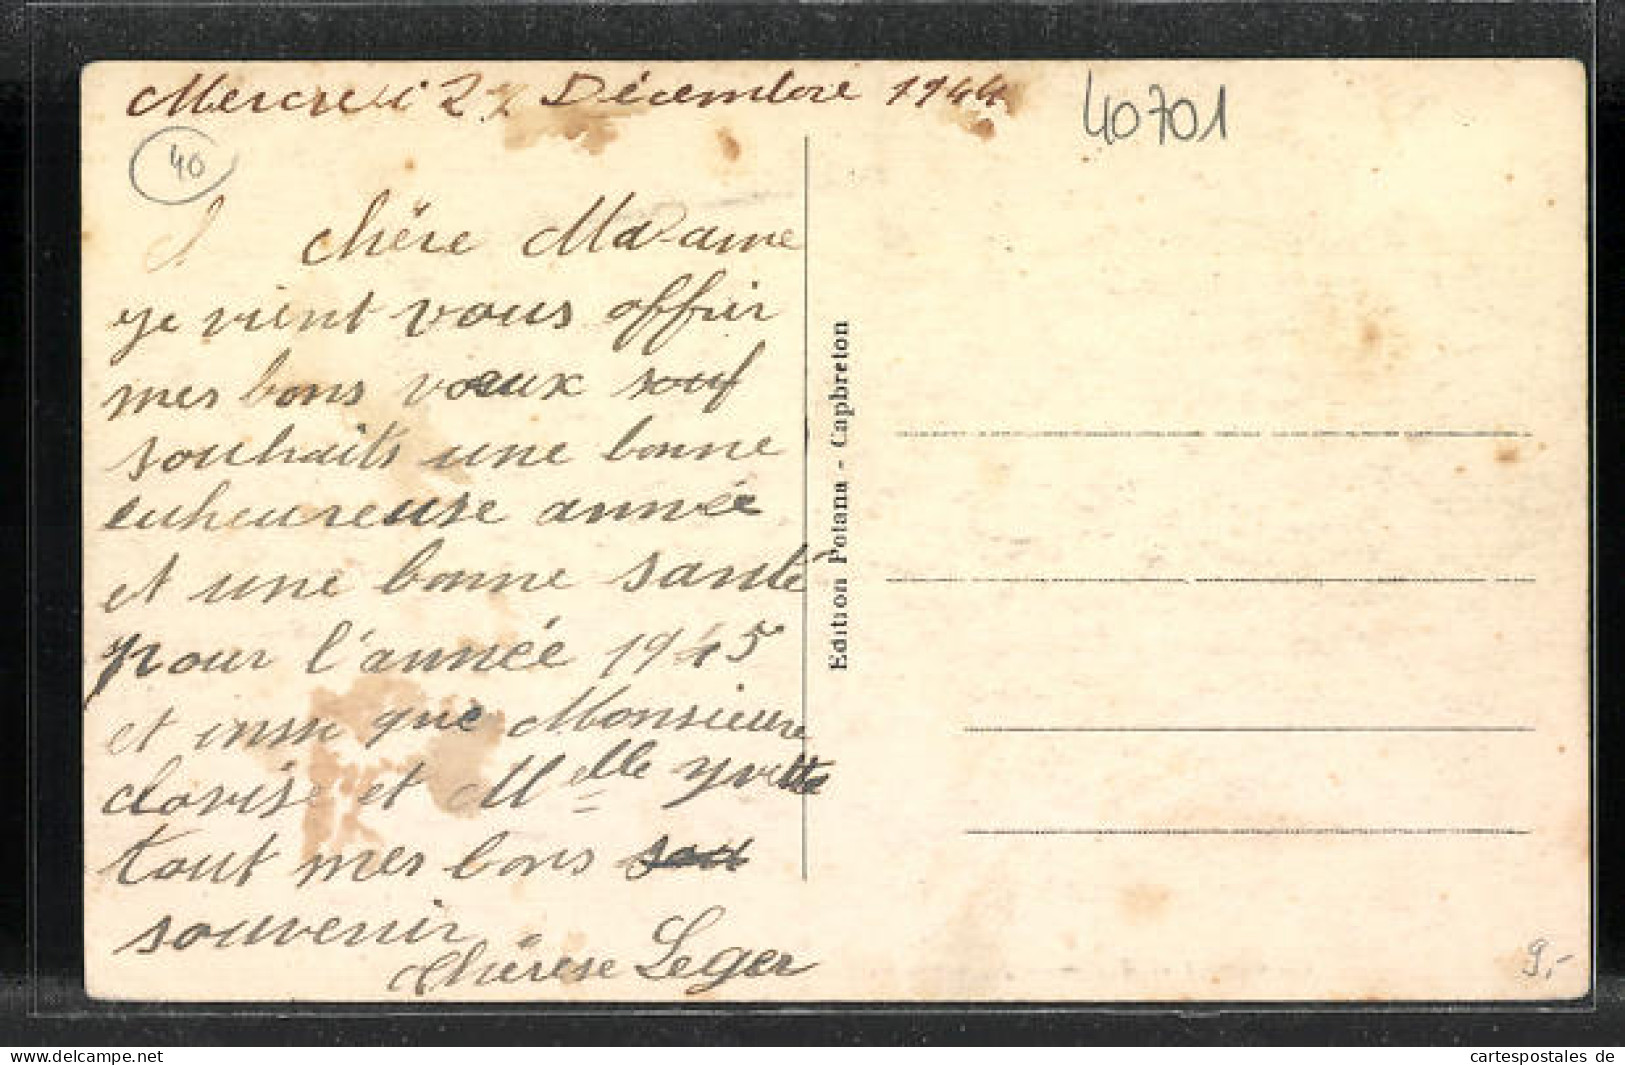 Mercredi 27 Décembre 1944
40701
40
chère Madame
je vient vous offrir
mes bons voeux souf
souhaits une bonne
euheureuse année
et une bonne santé
pour l'année 1945
et que Monsieure
clovis et Melle yvette
tout mes bons sou
souvenir
thérèse Leger
Edition Potana - Capbreton
9,-
www.cartespostales.eu
cartespostales de